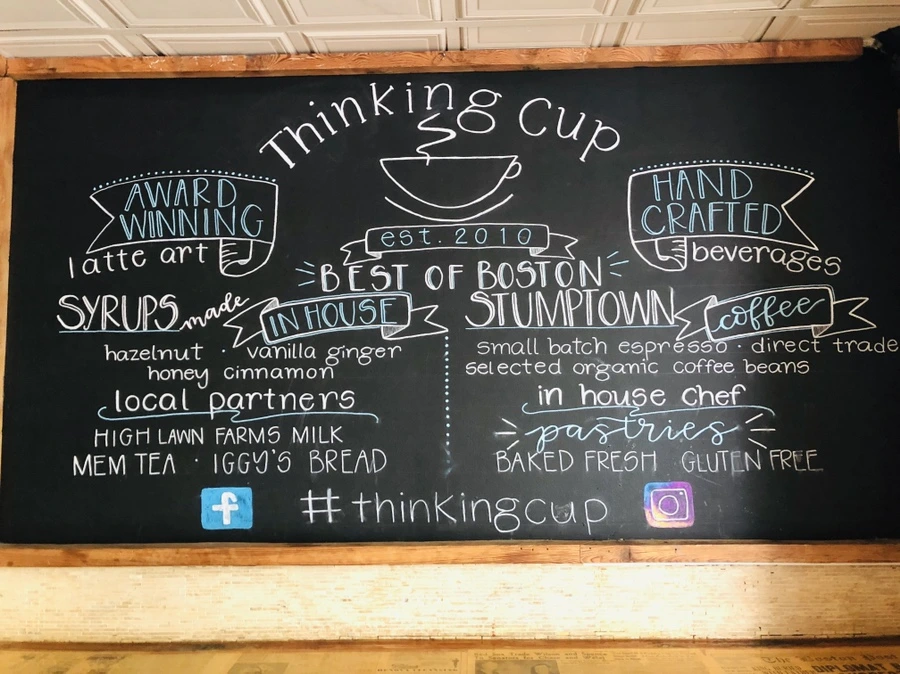 Thinking Cup
AWARD
WINNING
latte art
HAND
CRAFTED
beverages
est. 2010
BEST OF BOSTON
SYRUPS made IN HOUSE
hazelnut · vanilla ginger
honey cinnamon
local partners
HIGH LAWN FARMS MILK
MEM TEA · IGGY'S BREAD
STUMPTOWN coffee
small batch espresso · direct trade
selected organic coffee beans
in house chef
pastries
BAKED FRESH GLUTEN FREE
f #thinkingcup
DIPLOMAT